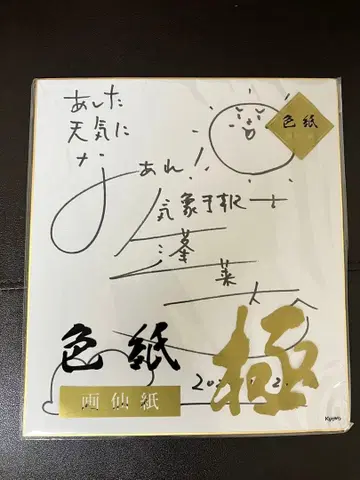 あした
天気に
な
あれ!
気象予報士
蓬
莱
色紙
色紙
画仙紙
極